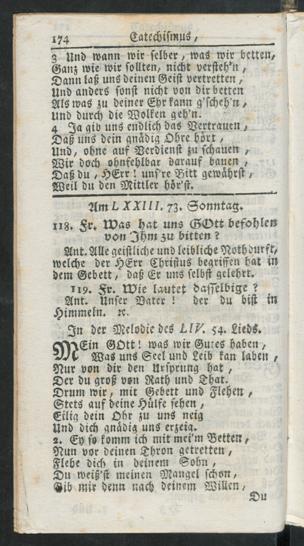 174 Catechismus,
3 Und wann wir selber, was wir betten,
Ganz wie wir sollten, nicht versteh'n,
Dann laß uns deinen Geist vertretten,
Und anders sonst nicht von dir betten
Als was zu deiner Ehr kann g'scheh'n,
Und durch die Wolken geh'n.
4 Ja gib uns endlich das Vertrauen,
Daß uns dein gnädig Ohre hört,
Und, ohne auf Verdienst zu schauen,
Wir doch ohnfehlbar darauf bauen,
Daß du, HErr! uns're Bitt gewährst,
Weil du den Mittler hör'st.
Am LXXIII. 73. Sonntag.
118. Fr. Was hat uns GOtt befohlen
von Ihm zu bitten?
Ant. Alle geistliche und leibliche Nothdurft,
welche der HErr Christus begriffen hat in
dem Gebett, daß Er uns selbst gelehrt.
119. Fr. Wie lautet dasselbige?
Ant. Unser Vater! der du bist in
Himmeln. ꝛc.
In der Melodie des LIV. 54. Lieds.
MEin GOtt! was wir Gutes haben,
Was uns Seel und Leib kan laben,
Nur von dir den Ursprung hat,
Der du groß von Rath und That.
Drum wir, mit Gebett und Flehen,
Stets auf deine Hülfe sehen,
Eilig dein Ohr zu uns neig
Und dich gnädig uns erzeig.
2. Ey so komm ich mit mei'm Betten,
Nun vor deinen Thron getretten,
Flehe dich in deinem Sohn,
Du weiß'st meinen Mangel schon,
Gib mir denn nach deinem Willen,
Du